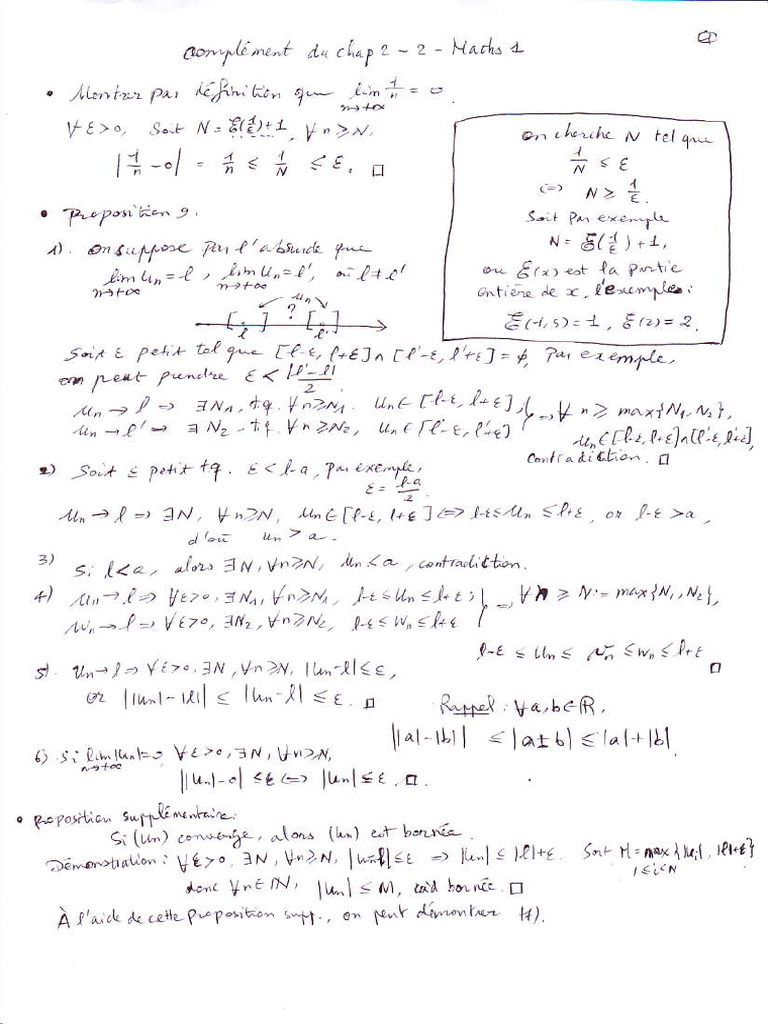 Complément du chap 2 - 2 - Maths 1
• Montrer par définition que lim_{n→+∞} 1/n = 0.
∀ε>0, Soit N = E(1/ε)+1, ∀n≥N,
|1/n - 0| = 1/n ≤ 1/N ≤ ε. □
On cherche N tel que
1/N ≤ ε
(=) N ≥ 1/ε.
Soit par exemple
N = E(1/ε)+1,
où E(x) est la partie
entière de x, l'exemple:
E(1,5)=1, E(2)=2.
• Proposition 9.
1). On suppose par l'absurde que
lim_{n→+∞} Un = l, lim_{n→+∞} Un = l', où l≠l'
Un
?
l l'
Soit ε petit tel que [l-ε, l+ε]∩[l'-ε, l'+ε]=∅, Par exemple,
on peut prendre ε < |l'-l|/2.
Un → l => ∃N1, t.q. ∀n≥N1. Un∈[l-ε, l+ε],
Un → l' => ∃N2 t.q. ∀n≥N2, Un∈[l'-ε, l'+ε]
} => ∀n≥max{N1,N2},
Un∈[l-ε,l+ε]∩[l'-ε,l'+ε],
Contradiction. □
2) Soit ε petit tq. ε < l-a, par exemple,
ε = (l-a)/2.
Un → l => ∃N, ∀n≥N, Un∈[l-ε, l+ε] (=> l-ε≤Un≤l+ε, or l-ε>a,
d'où Un > a.
3) Si l<a, alors ∃N, ∀n≥N, Un<a, contradiction.
4) Un→l => ∀ε>0, ∃N1, ∀n≥N1, l-ε≤Un≤l+ε;
Wn→l => ∀ε>0, ∃N2, ∀n≥N2, l-ε≤Wn≤l+ε
} => ∀n ≥ N:= max{N1,N2},
l-ε ≤ Un ≤ Vn ≤ Wn ≤ l+ε □
5). Un→l => ∀ε>0, ∃N, ∀n≥N, |Un-l|≤ε,
or ||Un|-|l|| ≤ |Un-l| ≤ ε. □
Rappel: ∀a,b∈ℝ,
||a|-|b|| ≤ |a±b| ≤ |a|+|b|.
6) Si lim_{n→+∞} |Un|=0, ∀ε>0, ∃N, ∀n≥N,
||Un|-0| ≤ε (=) |Un|≤ε. □.
• Proposition supplémentaire:
Si (Un) converge, alors (Un) est bornée.
Démonstration: ∀ε>0, ∃N, ∀n≥N, |Un-l|≤ε => |Un|≤|l|+ε. Soit M=max_{1≤i<N}{|Ui|, |l|+ε}
donc ∀n∈ℕ, |Un| ≤ M, càd bornée. □
À l'aide de cette proposition supp., on peut démontrer